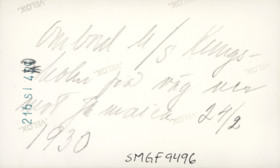 Ombord M/S Kungs-
holm på väg ner
mot Jamaica 24/2
1930
216 SI
SMGF9496
VELOX